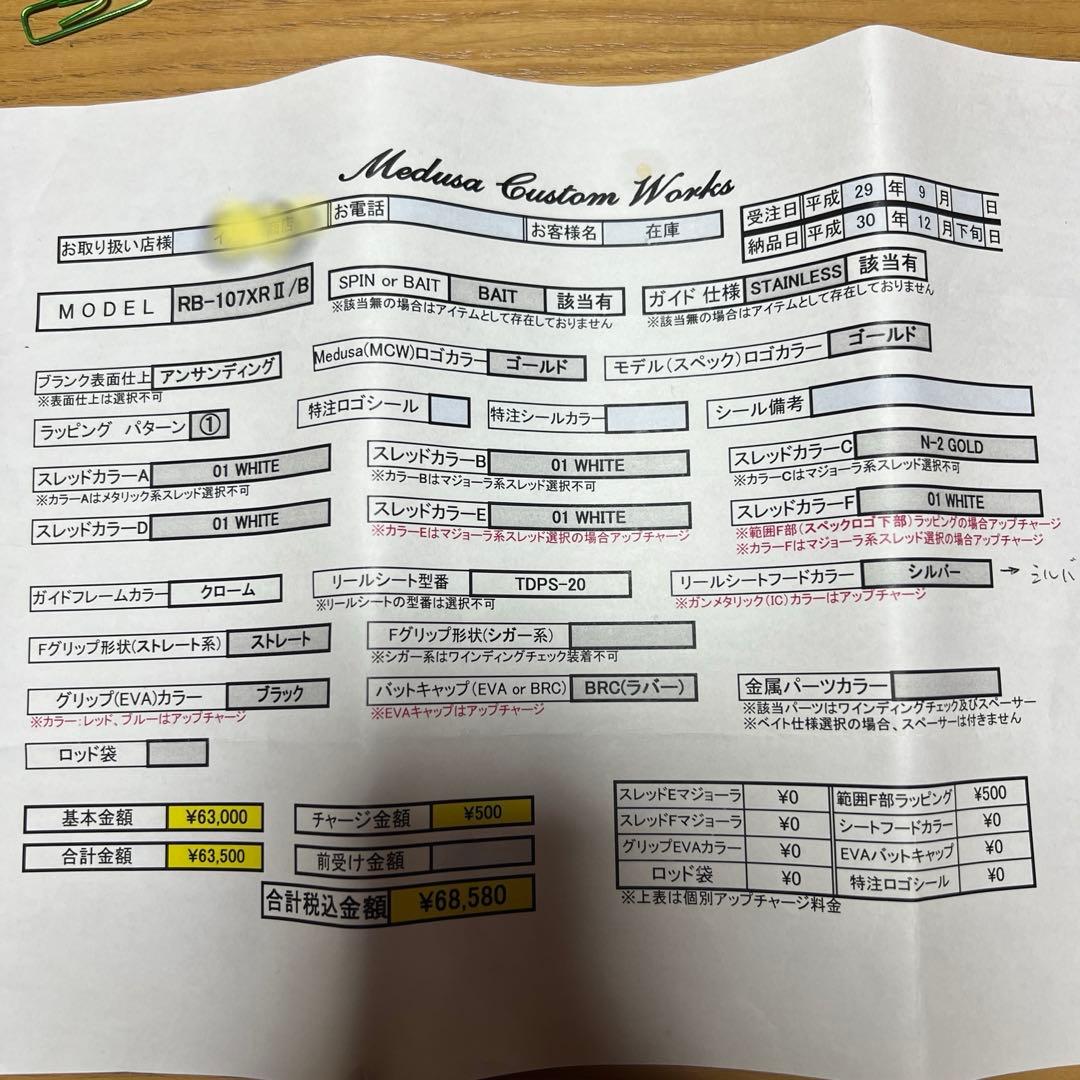 Medusa Custom Works
受注日 平成 29 年 9 月 日
納品日 平成 30 年 12 月 下旬 日
お取り扱い店様 お電話 お客様名 在庫
MODEL RB-107XRⅡ/B SPIN or BAIT BAIT 該当有 ガイド 仕様 STAINLESS 該当有
※該当無の場合はアイテムとして存在しておりません ※該当無の場合はアイテムとして存在しておりません
ブランク表面仕上 アンサンディング Medusa(MCW)ロゴカラー ゴールド モデル(スペック)ロゴカラー ゴールド
※表面仕上は選択不可
ラッピング パターン ① 特注ロゴシール 特注シールカラー シール備考
スレッドカラーA 01 WHITE スレッドカラーB 01 WHITE スレッドカラーC N-2 GOLD
※カラーAはメタリック系スレッド選択不可 ※カラーBはマジョーラ系スレッド選択不可 ※カラーCはマジョーラ系スレッド選択不可
スレッドカラーD 01 WHITE スレッドカラーE 01 WHITE スレッドカラーF 01 WHITE
※カラーEはマジョーラ系スレッド選択の場合アップチャージ ※範囲F部(スペックロゴ下部)ラッピングの場合アップチャージ
※カラーFはマジョーラ系スレッド選択の場合アップチャージ
ガイドフレームカラー クローム リールシート型番 TDPS-20 リールシートフードカラー シルバー → シルバ
※リールシートの型番は選択不可 ※ガンメタリック(IC)カラーはアップチャージ
Fグリップ形状(ストレート系) ストレート Fグリップ形状(シガー系)
※シガー系はワインディングチェック装着不可
グリップ(EVA)カラー ブラック バットキャップ(EVA or BRC) BRC(ラバー) 金属パーツカラー
※カラー:レッド、ブルーはアップチャージ ※EVAキャップはアップチャージ ※該当パーツはワインディングチェック及びスペーサー
※ベイト仕様選択の場合、スペーサーは付きません
ロッド袋
基本金額 ¥63,000 チャージ金額 ¥500
合計金額 ¥63,500 前受け金額
合計税込金額 ¥68,580
スレッドEマジョーラ ¥0 範囲F部ラッピング ¥500
スレッドFマジョーラ ¥0 シートフードカラー ¥0
グリップEVAカラー ¥0 EVAバットキャップ ¥0
ロッド袋 ¥0 特注ロゴシール ¥0
※上表は個別アップチャージ料金